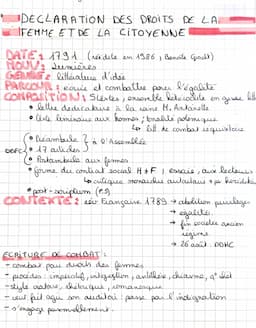 DECLARATION DES DROITS DE LA
FEMME ET DE LA CITOYENNE
DATE : 1791 (rééditée en 1986, Benoîte Groult)
MOUV : Lumières
GENRE : littérature d'idée
PARCOURS : écrire et combattre pour l'égalité
COMPOSITION : 5 textes, ensemble hétéroclite
• lettre dédicatoire à la reine M. Antoinette
• texte liminaire aux hommes, tonalité polémique
↳ but de combat
DDFC
• Préambule
• 17 articles
à l'Assemblée
• Postambule aux femmes
• forme du contrat social H + F, essais, aux lecteurs
↳ critique monarchie autoritaire + pr hérédité
• post-scriptum (P.S)
CONTEXTE : rév Française 1789 → abolition privilèges
→ égalités
→ fin société ancien
régime
→ 26 août : DDHC
ECRITURE DE COMBAT :
- combat pour droits des femmes
- procédés : impératif, intégration, antithèse, chiasme,
- style oratoire, rhétorique,
- veut fait agir son auditoire : passe par l'indignation
- s'engage personnellement.